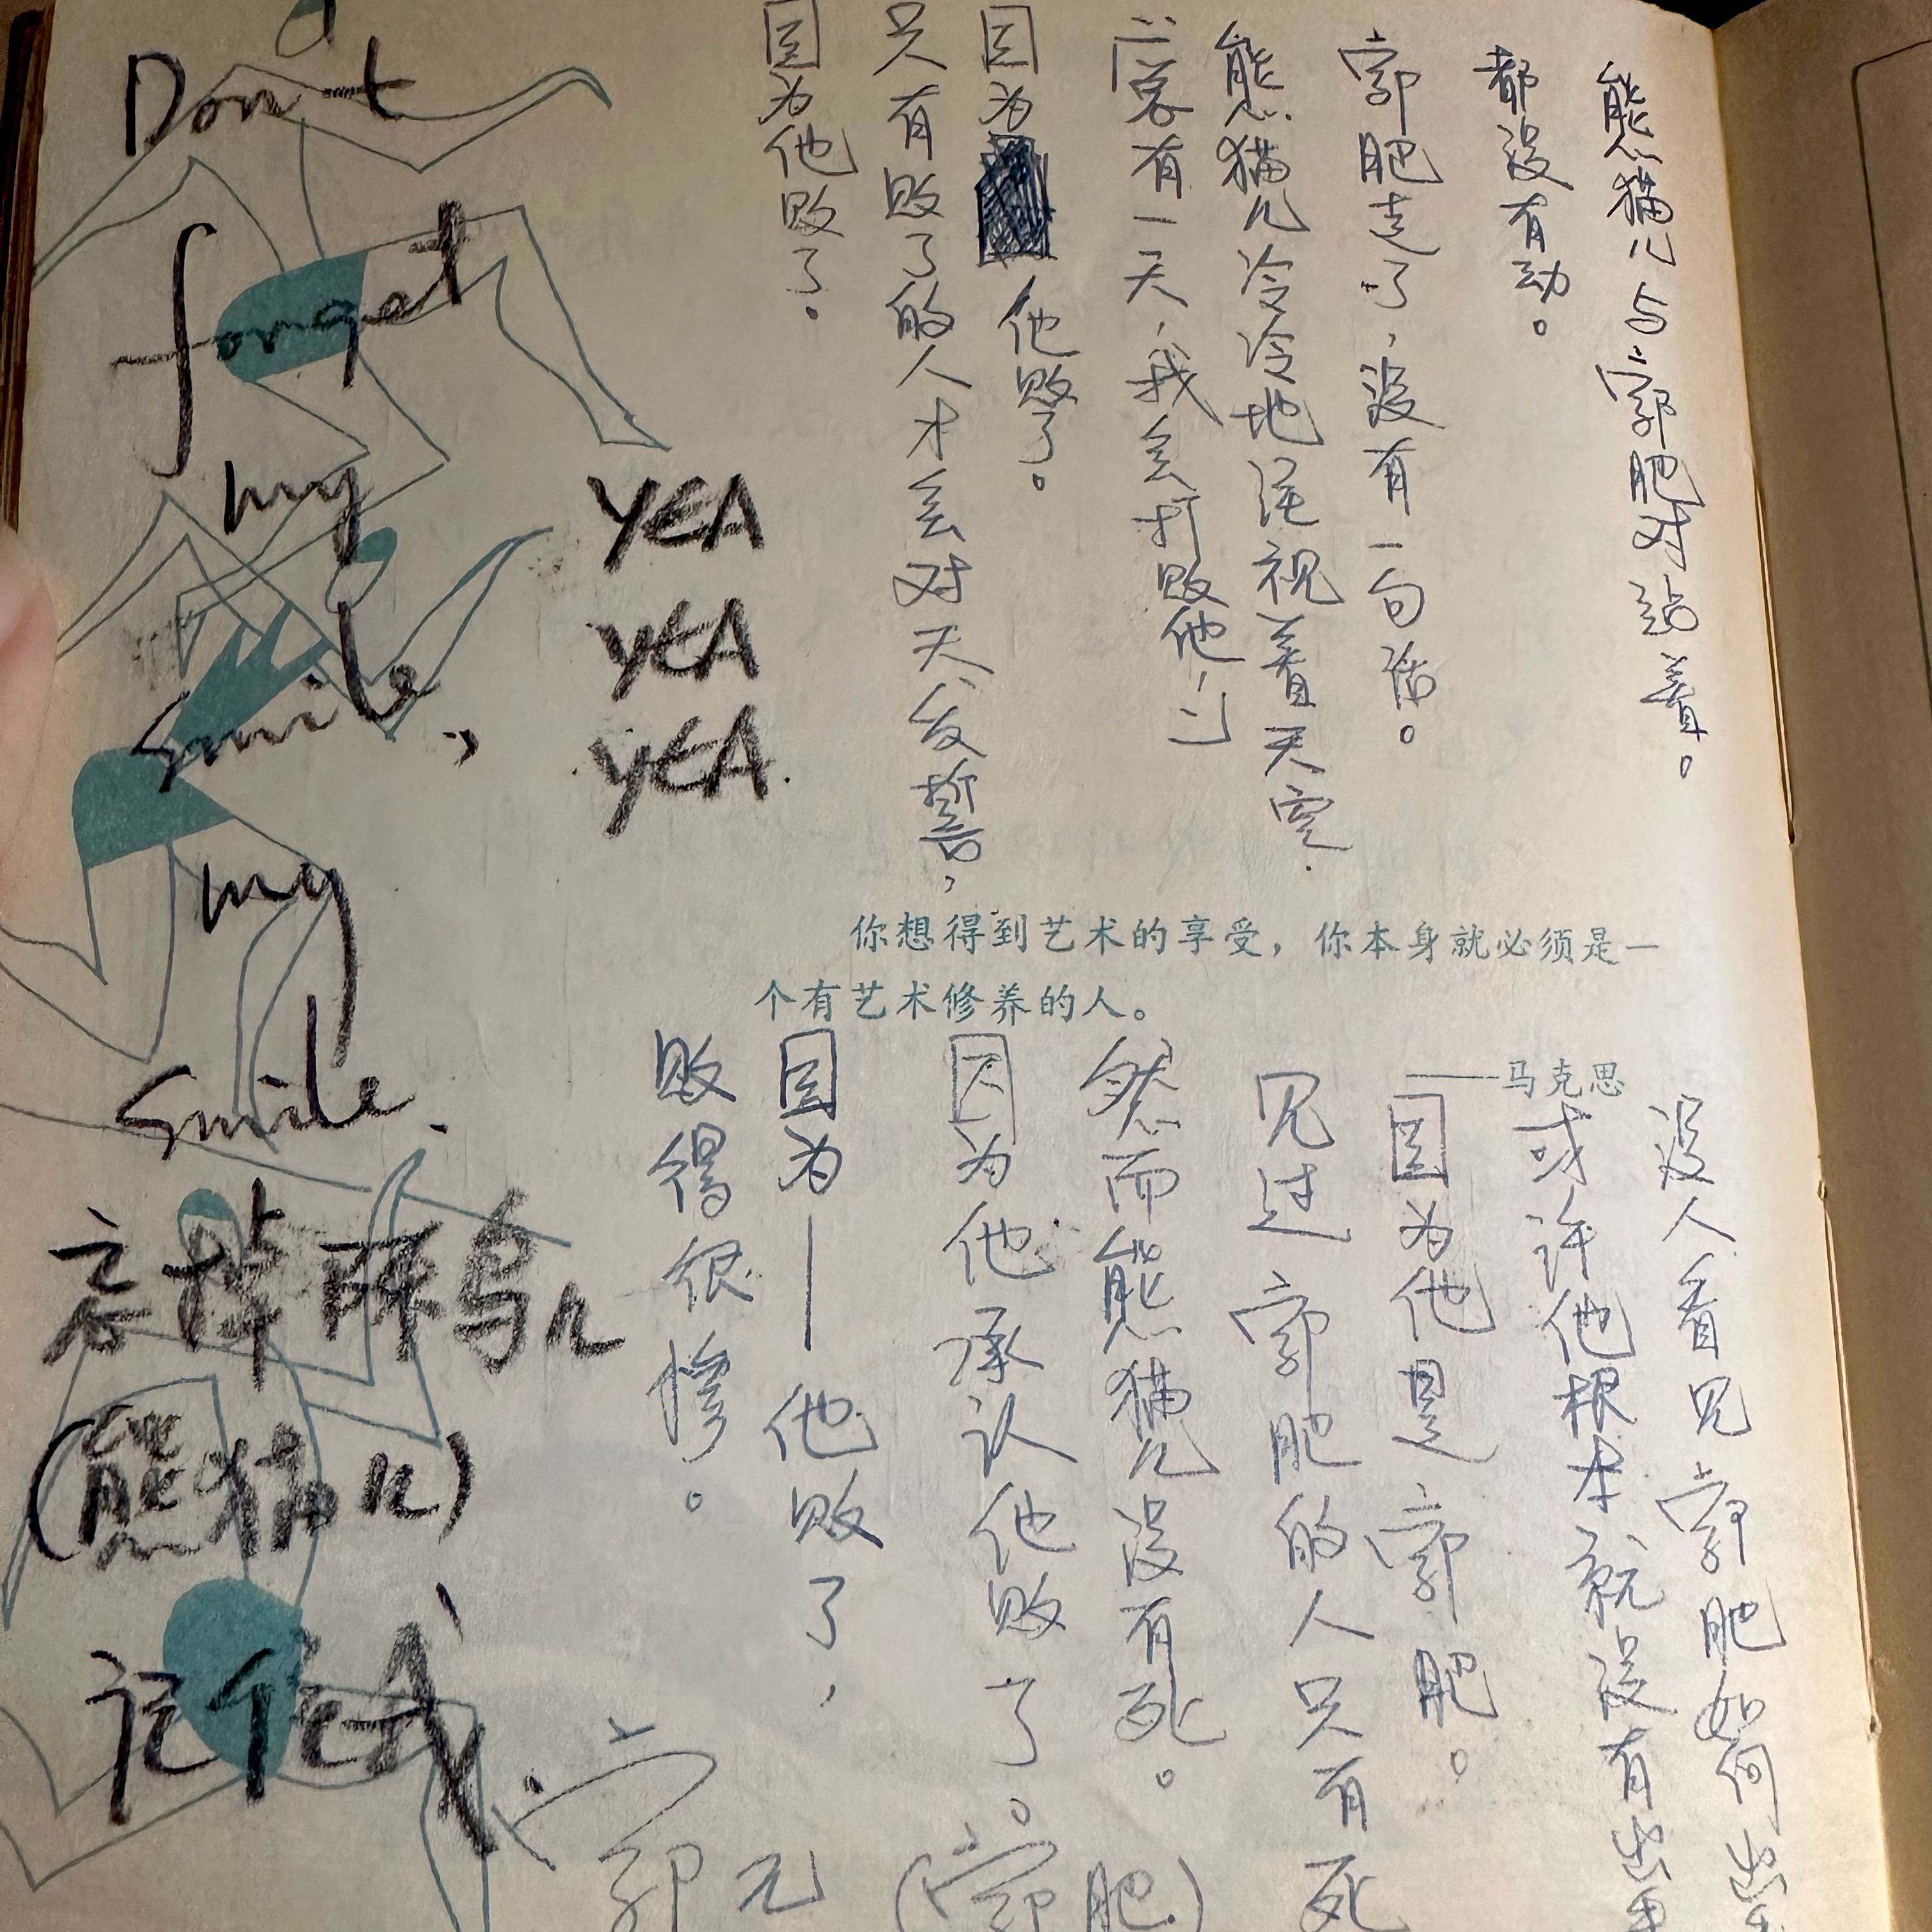 熊猫儿与郭肥对站着。
都没有动。
郭肥走了，没有一句话。
熊猫儿冷冷地视着天空.
「总有一天，我会打败他！」
因为他败了。
只有败了的人才会对天发誓，
因为他败了。
你想得到艺术的享受，你本身就必须是一
个有艺术修养的人。
——马克思
没人看见郭肥如何出手
或许他根本就没有出手
因为他是郭肥。
见过郭肥的人只有死
然而熊猫儿没有死。
因为他承认他败了。
因为—他败了，
败得很惨。
(郭肥)
郭元
Don't
forget
my
smile,
my
smile.
YEA
YEA
YEA.
(熊猫儿)